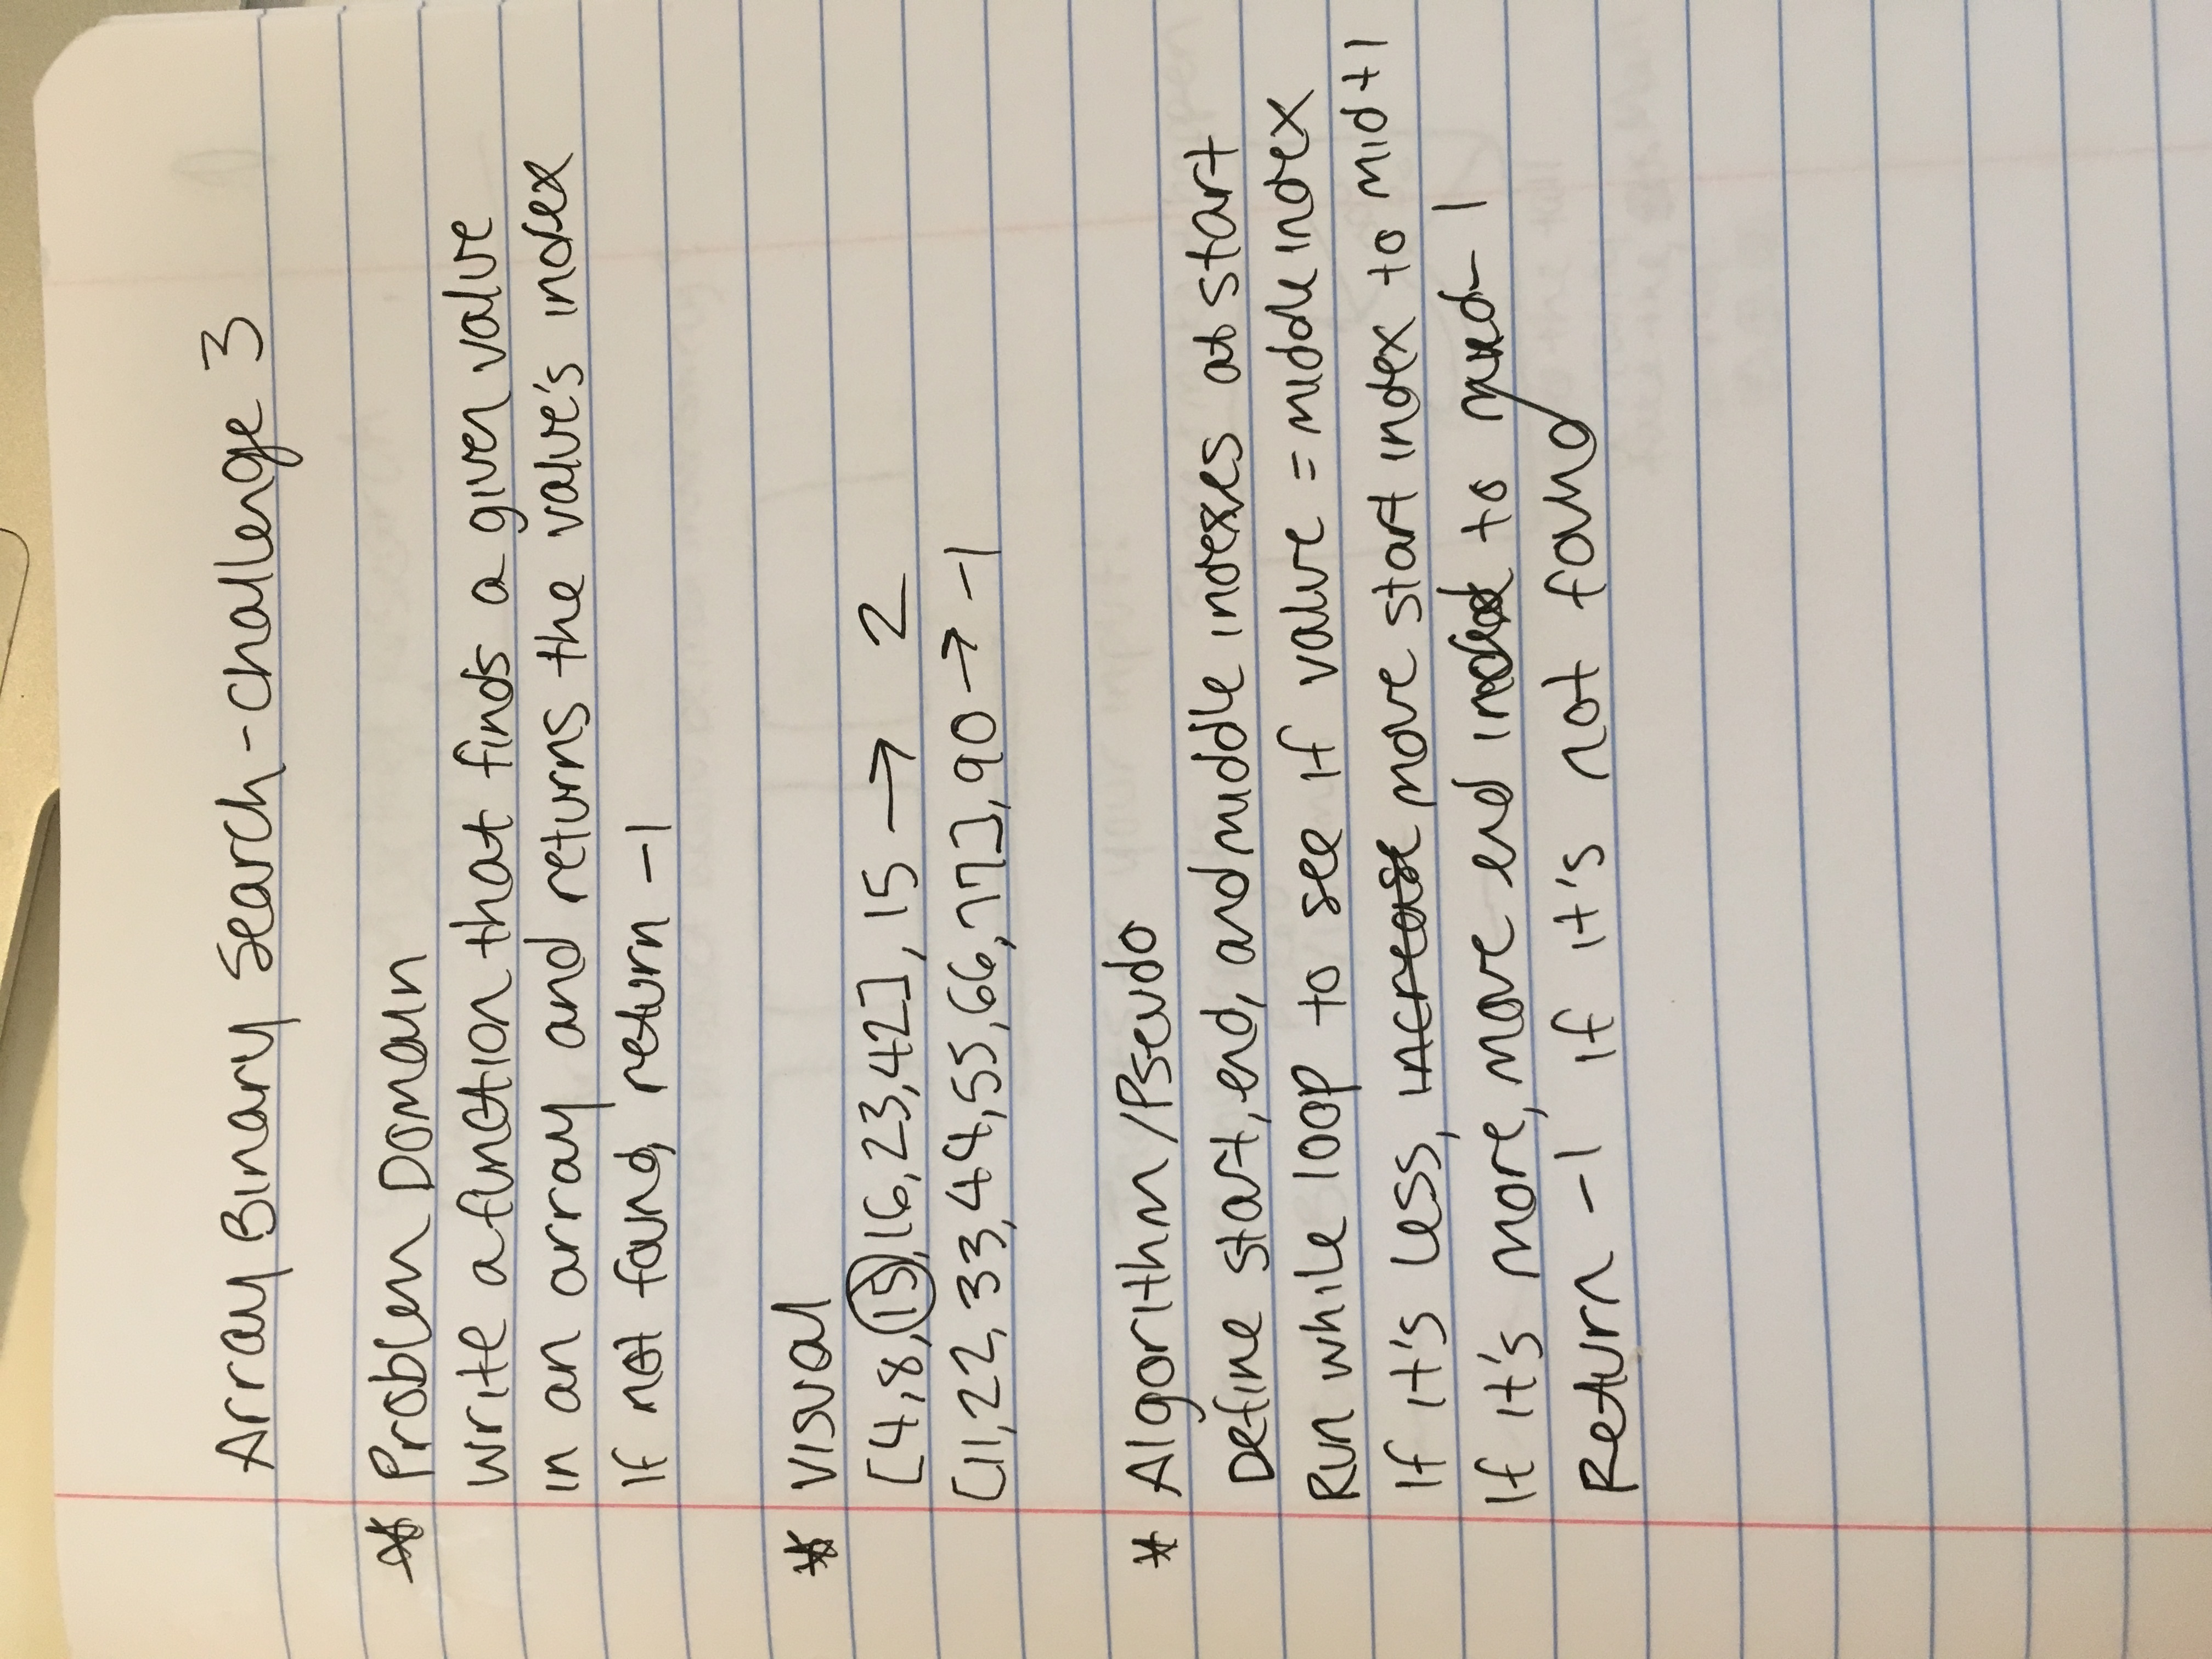 Array Binary Search - challenge 3
* Problem Domain
Write a function that finds a given value
in an array and returns the value's index
If not found, return -1
* Visual
[4,8,15,16,23,42], 15 → 2
[11,22,33,44,55,66,77], 90 → -1
* Algorithm/Pseudo
Define start, end, and middle indexes at start
Run while loop to see if value = middle index
If it's less, increase move start index to mid+1
If it's more, move end index to mid-1
Return -1 if it's not found